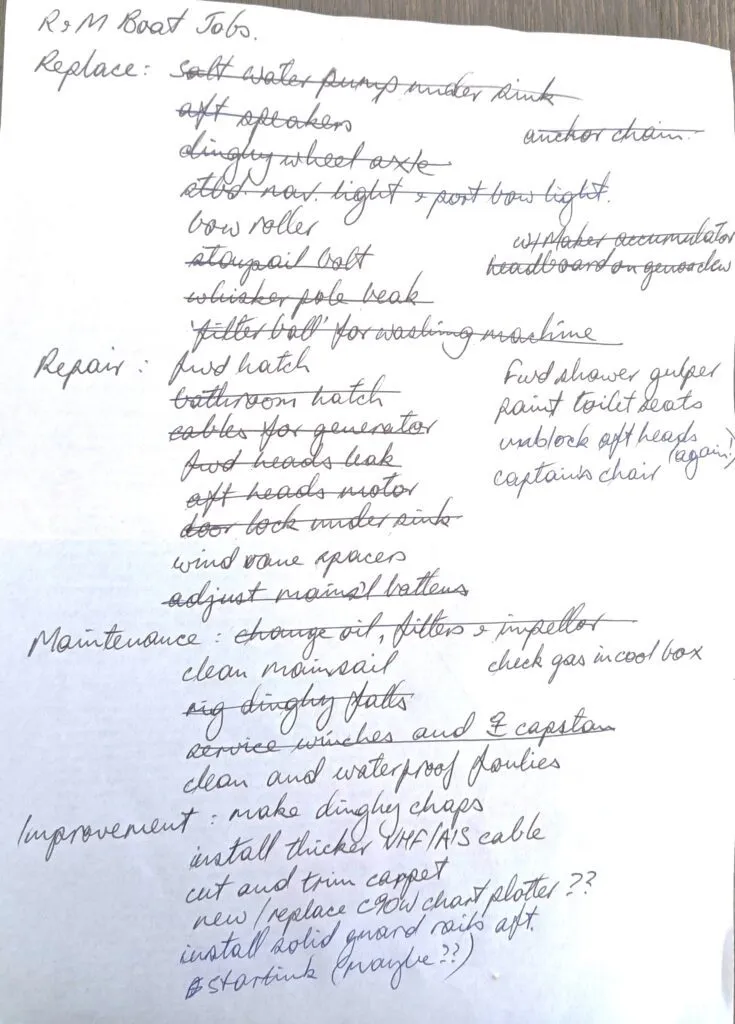 R & M Boat Jobs.
Replace: salt water pump under sink
aft speakers
anchor chain.
dinghy wheel axle
stbd. nav. light & port bow light.
bow roller
w/Maker accumulator
staypail bolt
headboard on genoa clew
whisker pole beak
'filter ball' for washing machine
Repair: fwd hatch
fwd shower gulper
bathroom hatch
paint toilet seats
cables for generator
unblock aft heads (again!)
fwd heads leak
captain's chair
aft heads motor
door lock under sink
wind vane spacers
adjust mains'l battens
Maintenance: change oil, filters & impellor
clean mainsail
check gas in cool box
rig dinghy falls
service winches and capstan
clean and waterproof foulies
Improvement: make dinghy chaps
install thicker VHF/AIS cable
cut and trim carpet
new/replace C90W chart plotter??
install solid guard rails aft.
startink (maybe??)